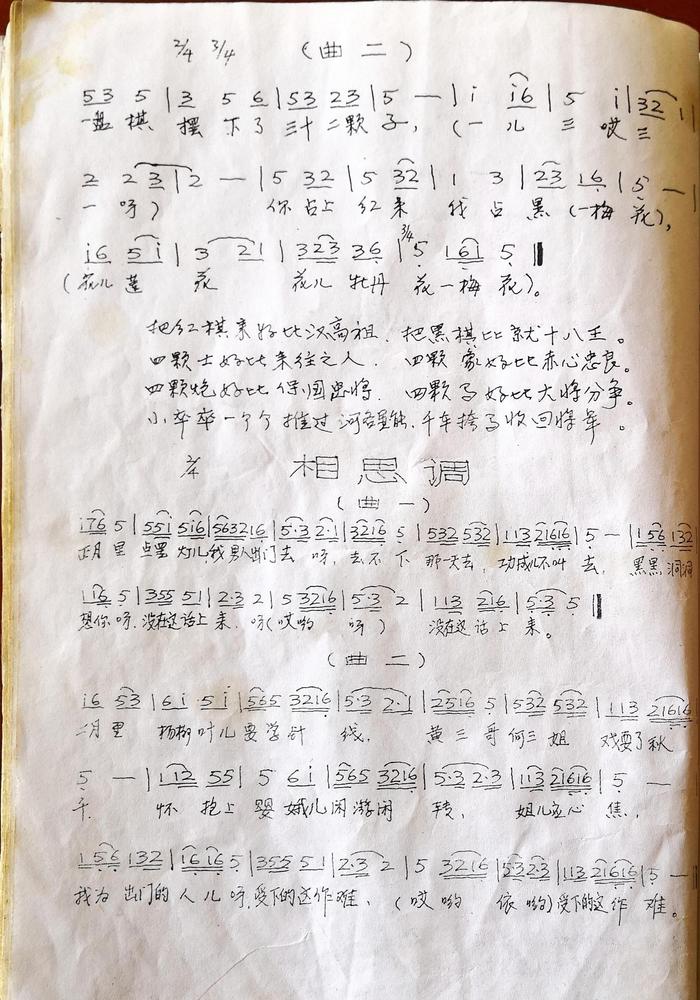 2/4 3/4 （曲二）
53 5 | 3 5 6 | 53 23 | 5 — | i i6 | 5 i | 32 1
一盘棋 摆下了 三十二颗子，（一儿 三哎三
2 2 3 | 2 — | 5 32 | 5 32 | 1 3 | 23 16 | 5 —
一呀） 你占上红来 我占黑（一梅花），
i6 5i | 3 21 | 323 36 | 3/4 5 161 5 ‖
（花儿莲 花 花儿牡丹 花一梅花）。
把红棋来好比汉高祖．把黑棋比就十八王。
四颗士好比来往之人．四颗象好比赤心忠良。
四颗炮好比保国忠将．四颗马好比大将分争。
小卒卒一个个推过河 千车 收回将军。
2/4 相思调
（曲一）
i76 5 | 55i 5i6 | 563216 | 5·3 2·1 | 3216 5 | 532 532 | 113 21616 | 5 — | 156 132
正月里 点里灯儿，我男人出门去呀，去不下那一天去，功成 不叫去，黑黑洞洞
116 5 | 355 51 | 2·3 2 | 5 3216 | 5·3 2 | 113 216 | 5·3 5 ‖
想你呀．没在这话上来．呀（哎哟 呀） 没在这话上来。
（曲二）
i6 53 | 6i ·5i | 565 3216 | 5·3 2·1 | 22516 5 | 532 532 | 113 21616
二月里 杨柳叶儿要学针线． 黄三哥何三姐 戏耍了秋
5 — | 112 55 | 5 6i | 565 3216 | 5·3 2·3 | 113 21616 | 5 —
千． 怀抱上婴娥儿闲游闲转， 姐儿 心焦，
156 132 | 1616 5 | 355 51 | 2·3 2 | 5 3216 | 5323 | 113 21616 | 5 —
我为出门的人儿呀，受下的这作难、（哎哟 依哟）受下的这作难。